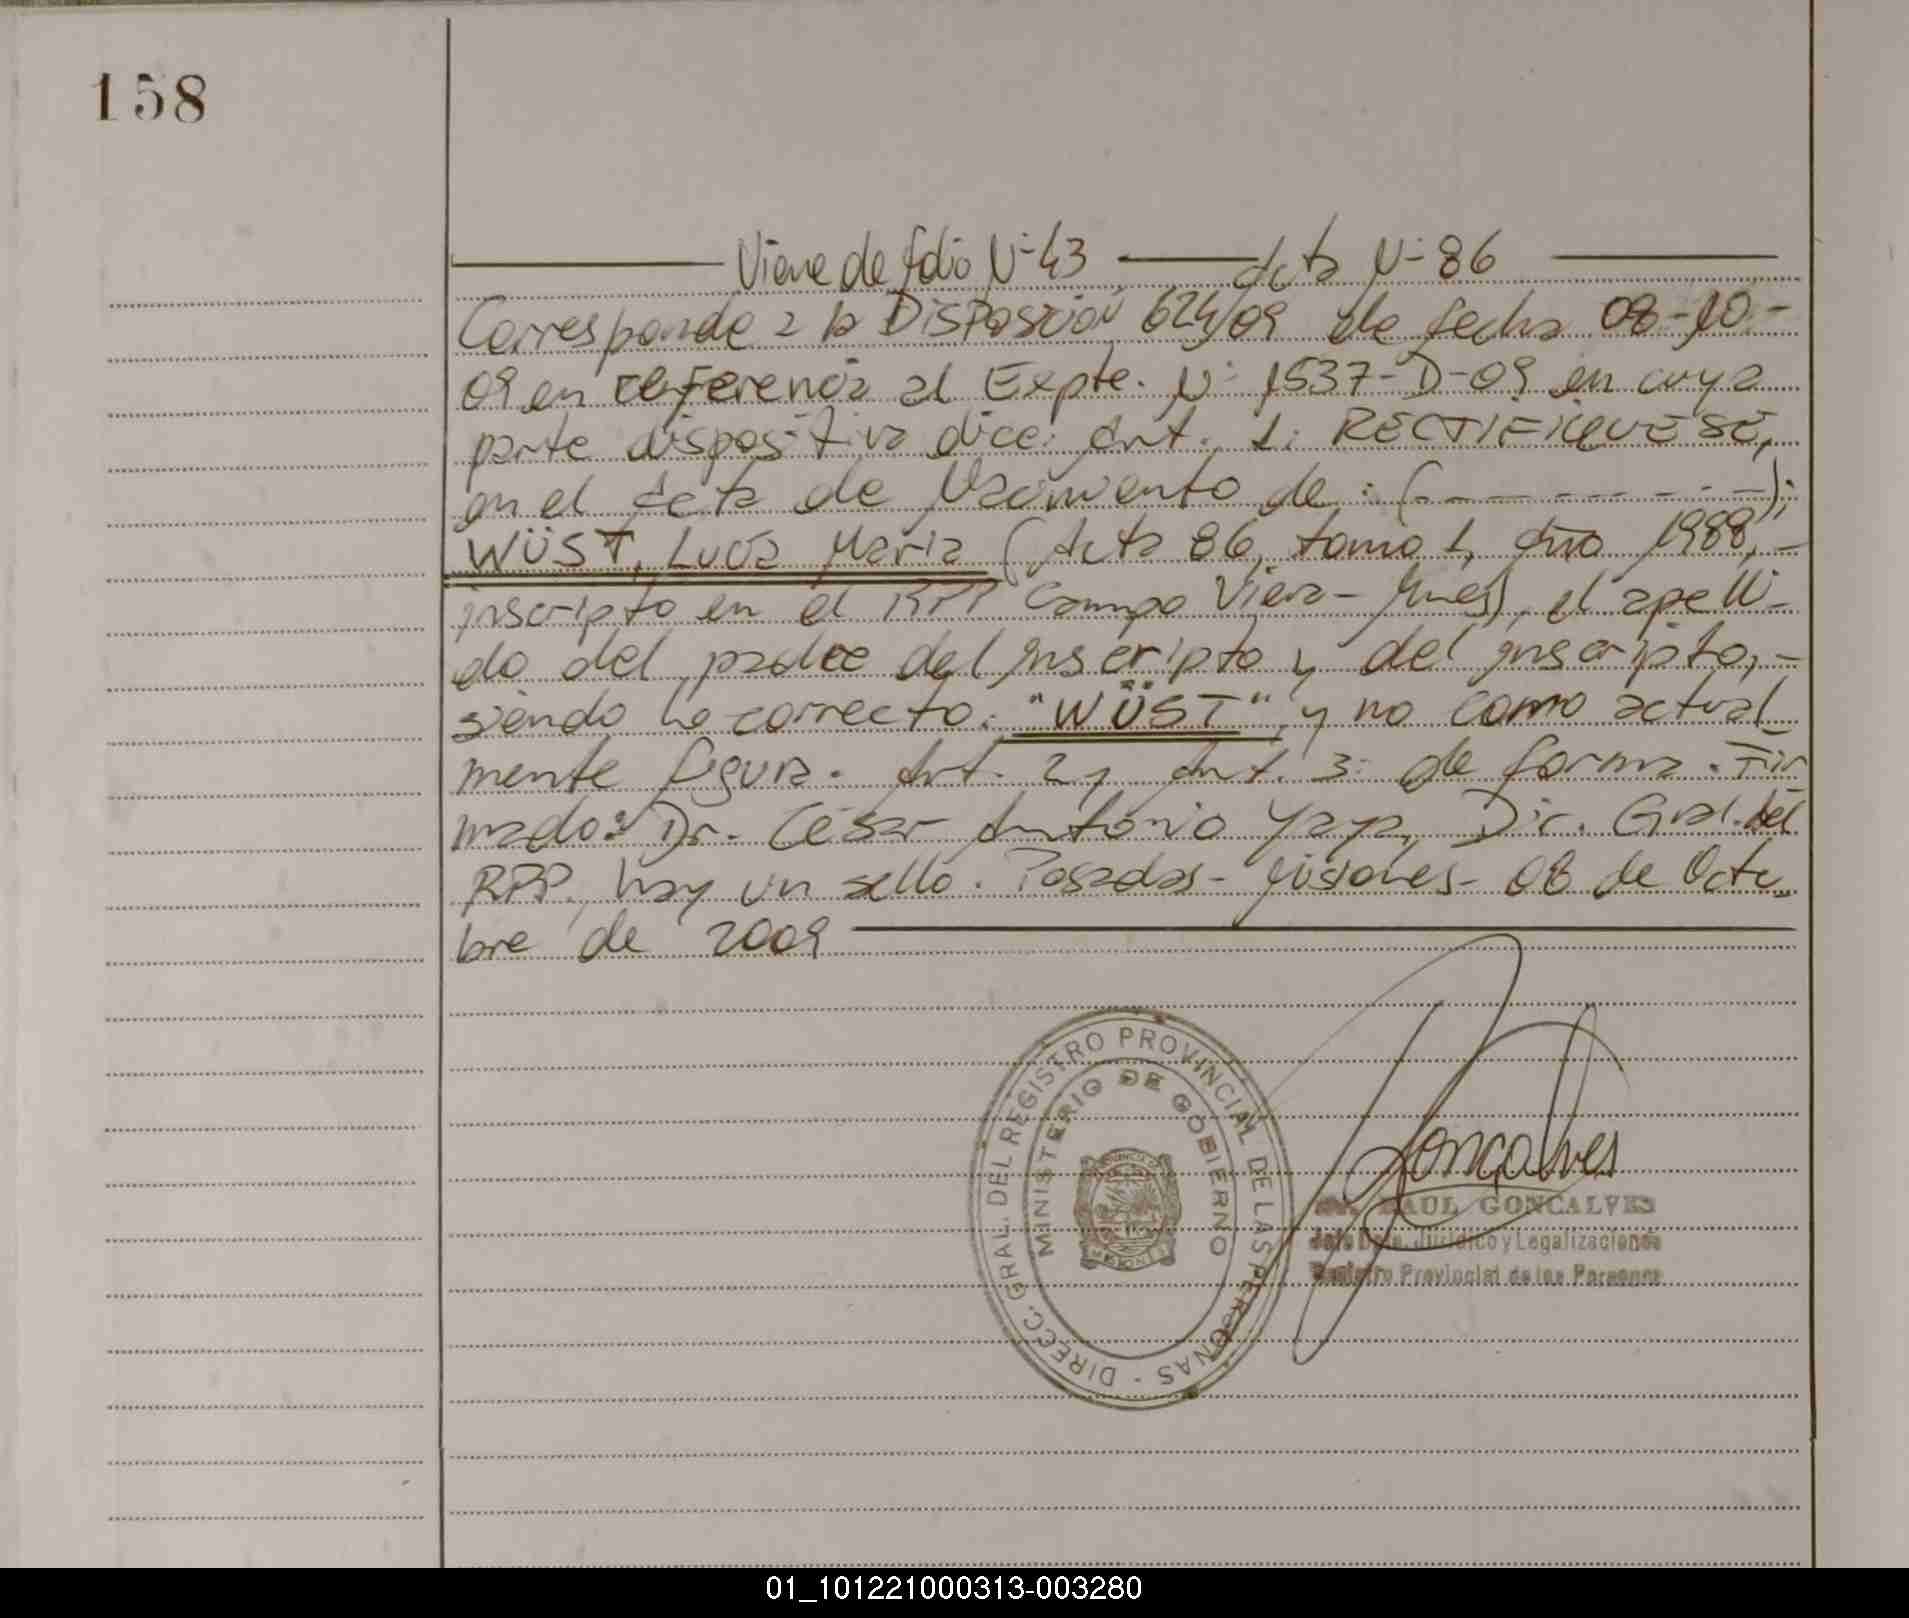 158
Viene de folio Nº 43 Acta Nº 86
Corresponde a la DISPOSICIÓN 624/09 de fecha 08-10-
09 en referencia al Expte. Nº 1537-D-09 en cuya
parte dispositiva dice: Art. 1: RECTIFIQUESE,
en el Acta de Nacimiento de: (- - - - - - - -);
WÜST, Lucía María (Acta 86, tomo 1, Año 1988, -
inscripto en el RPP Campo Viera - Mnes), el apelli-
do del padre del inscripto y del inscripto, -
siendo lo correcto: "WÜST" y no como actual
mente figura. Art. 2 y Art. 3: de forma. Fir
mado: Dr. César Antonio Yaya, Dir. Gral. del
RPP, hay un sello. Posadas - Misiones - 08 de Octu-
bre de 2009
DIRECC. GRAL. DEL REGISTRO PROVINCIAL DE LAS PERSONAS -
MINISTERIO DE GOBIERNO
MISIONES
Gonçalves
RAUL GONCALVES
Jefe Dpto. Jurídico y Legalizaciones
Registro Provincial de las Personas
01_101221000313-003280